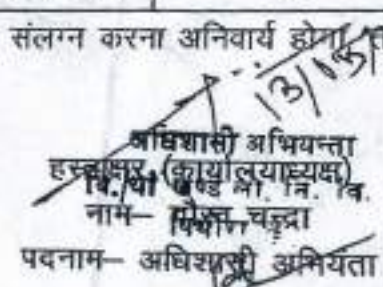 संलग्न करना अनिवार्य होगा
13/15/
अधिशासी अभियन्ता
हस्ताक्षर (कार्यालयाध्यक्ष)
वि./यां खण्ड लो. नि. वि.
नाम– चन्द्रा
पदनाम– अधिशासी अभियंता